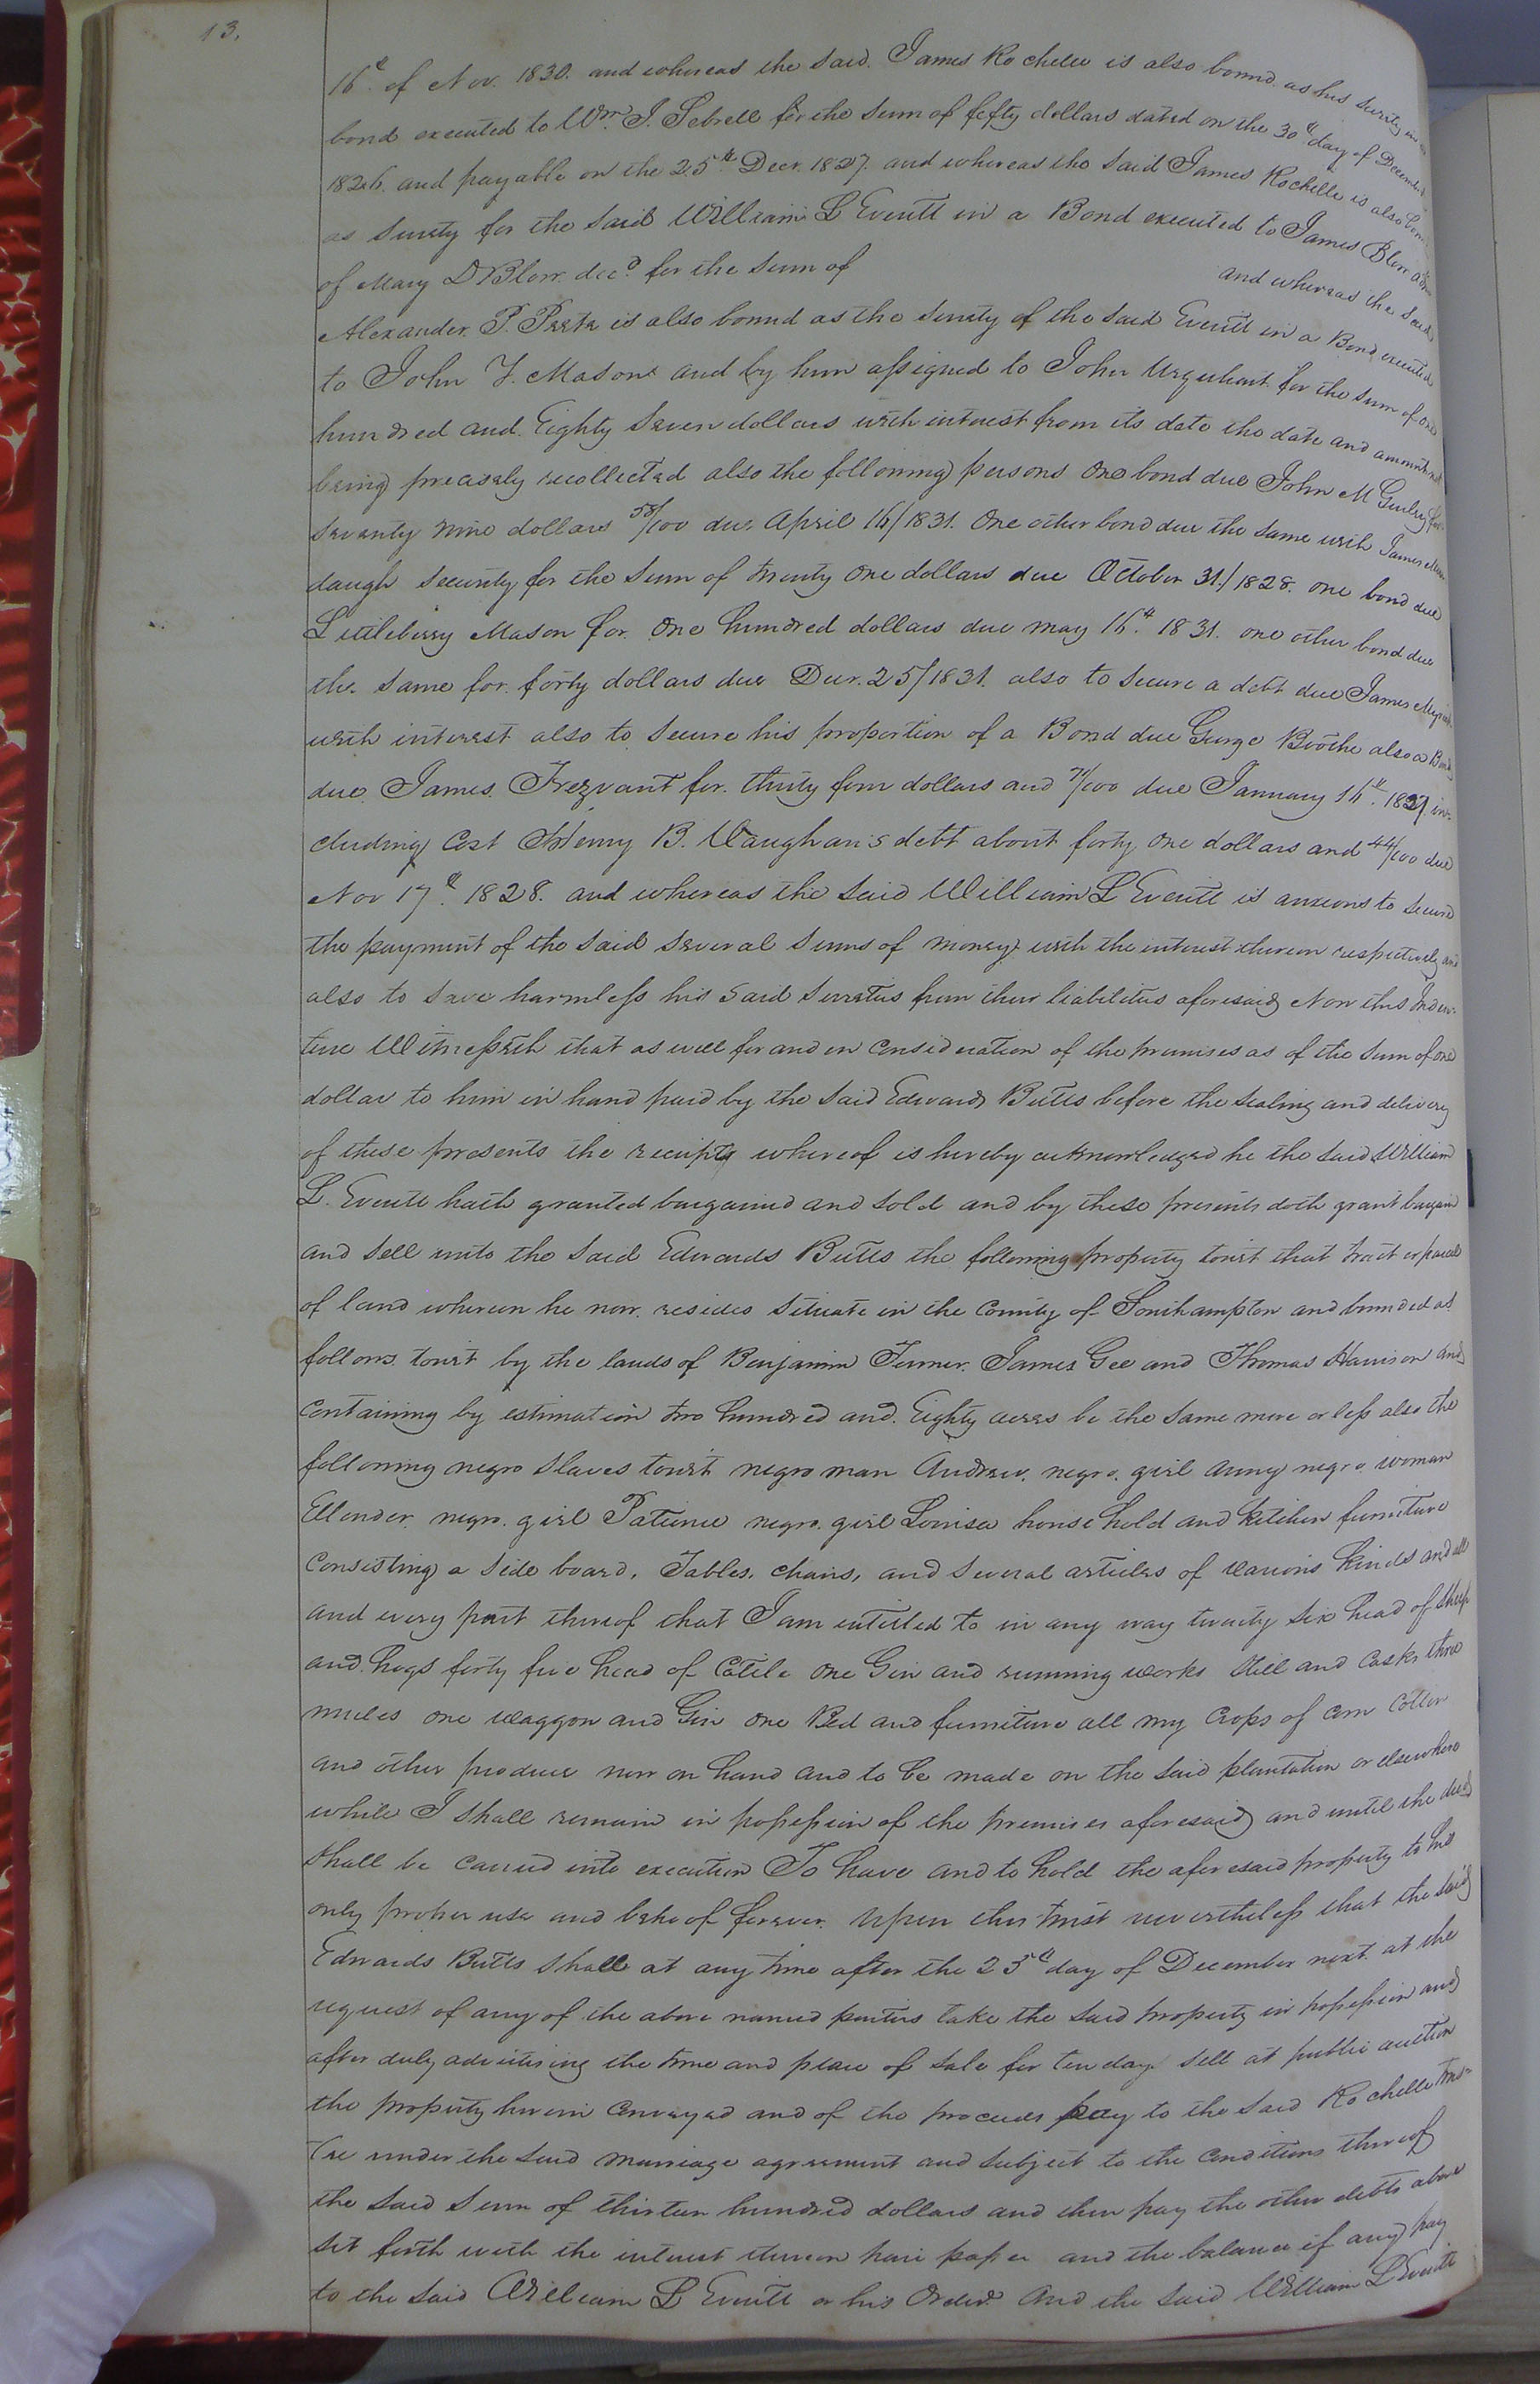 13.
16th of Nov. 1830. and whereas the said James Rochelle is also bound as his surety in a
bond executed to Wm. J. Sebrell for the sum of fifty dollars dated on the 30th day of December
1826. and payable on the 25th Decr. 1827. and whereas the said James Rochelle is also bound
as surety for the said William L Everitt in a Bond executed to James Blow adm
of Mary D Blow decd. for the sum of and whereas the said
Alexander P. Peete is also bound as the surety of the said Everitt in a Bond executed
to John Y. Mason and by him assigned to John Urquhart for the sum of one
hundred and Eighty Seven dollars with interest from its date the date and amount not
being precisely recollected also the following persons One bond due John M Gurley for
Seventy nine dollars 58/100 due April 16/1831. One other bond due the same with James
daugh Security for the Sum of twenty One dollars due October 31/1828. one bond due
Littleberry Mason for One hundred dollars due may 16th. 1831. one other bond due
the same for forty dollars due Decr. 25/1831. also to secure a debt due James
with interest also to secure his proportion of a Bond due George Boothe also a Bond
due James Trezvant for thirty four dollars and 71/100 due January 16th. 1827 in-
cluding Cost Henry B. Vaughan's debt about forty One dollars and 44/100 due
Nov 17th. 1828. and whereas the said William L Everitt is anxious to secure
the payment of the said several sums of money with the interest thereon respectively and
also to save harmless his said sureties from their liabilities aforesaid Now this Inden-
ture Witnesseth that as well for and in consideration of the premises as of the sum of one
dollar to him in hand paid by the said Edwards Butts before the sealing and delivery
of these presents the receipt whereof is hereby acknowledged he the said William
L. Everitt hath granted bargained and sold and by these presents doth grant bargain
and sell unto the said Edwards Butts the following property towit that tract or parcel
of land whereon he now resides situate in the County of Southampton and bounded as
follows towit by the lands of Benjamin Turner. James Gee and Thomas Harrison and
containing by estimation two hundred and Eighty acres be the same more or less also the
following negro slaves towit negro man Andrew. negro girl Anny negro woman
Ellender negro girl Patience negro girl Louisa house hold and kitchen furniture
Consisting a side board, Tables, chairs, and several articles of various kinds and all
and every part thereof that I am intitled to in any way twenty six head of sheep
and hogs forty five head of Cattle One Gin and running works Still and Casks three
mules one waggon and Gin one Bed and furniture all my Crops of corn Cotton
and other produce now on hand and to be made on the said plantation or elsewhere
while I shall remain in possession of the premises aforesaid and until the deed
shall be carried into execution To have and to hold the aforesaid property to his
only proper use and behoof forever. Upon this trust nevertheless that the said
Edwards Butts shall at any time after the 25th day of December next at the
request of any of the above named parties take the said property in possession and
after duly advertising the time and place of sale for ten days sell at public auction
the property herein conveyed and of the proceeds pay to the said Rochelle trus-
tee under the said marriage agreement and subject to the conditions thereof
the said sum of thirteen hundred dollars and then pay the other debts above
set forth with the interest thereon and the balance if any pay
to the said William L Everitt or his Order. And the said William L Everitt